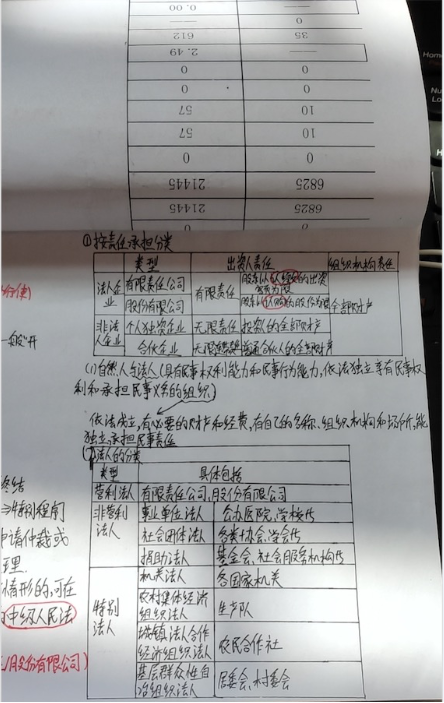 0.00 ——
—— ——
612 35
2.49 ——
0 0
0 0
57 10
57 10
0 0
21445 6825
21445 6825
①按责任承担分类
类型 出资人责任 组织机构责任
法人企业 有限责任公司 有限责任 股东以认缴的出资额为限 全部财产
股份有限公司 股东以认购的股份为限
非法人企业 个人独资企业 无限责任 投资人的全部财产
合伙企业 无限 普通合伙人的全部财产
(1)自然人与法人(具有民事权利能力和民事行为能力,依法独立享有民事权
利和承担民事义务的组织)
依法成立,有必要的财产和经费,有自己的名称、组织机构和场所,能
独立承担民事责任
法人的分类
类型 具体包括
营利法人 有限责任公司,股份有限公司
非营利法人 事业单位法人 公办医院,学校等
社会团体法人 各类协会,学会等
捐助法人 基金会,社会服务机构等
特别法人 机关法人 各国家机关
农村集体经济组织法人 生产队
城镇法合作经济组织法人 农民合作社
基层群众性自治组织法人 居委会,村委会
终结
特别程序
申请仲裁或
理
情形的,可在
中级人民法
股份有限公司)